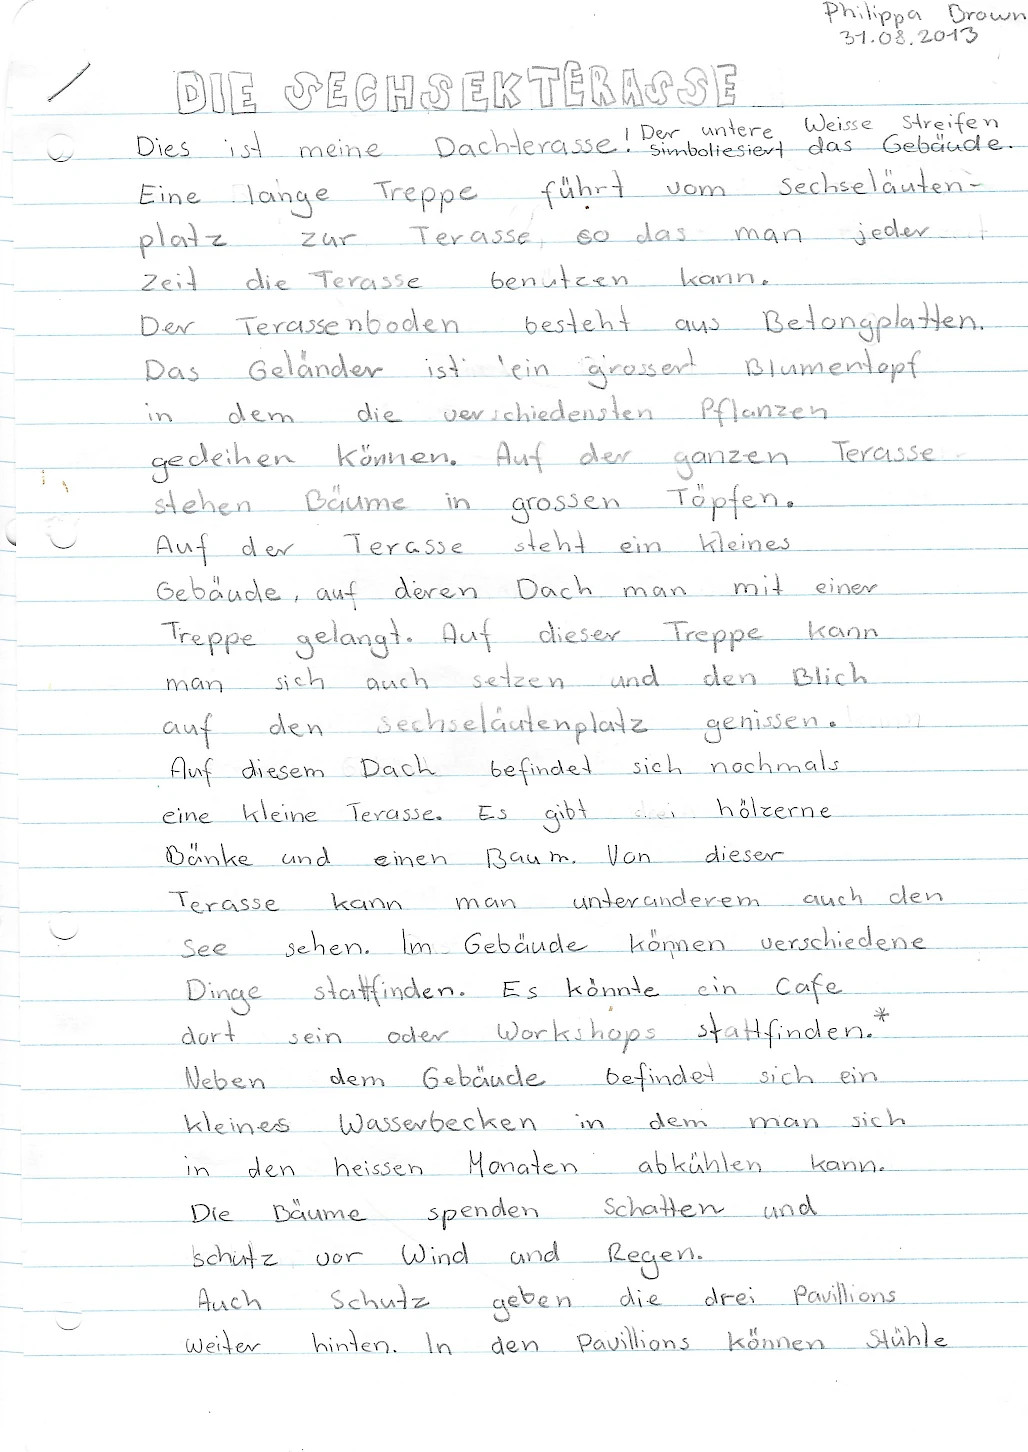 Philippa Brown
31.08.2013
DIE SECHSEKTERASSE
Dies ist meine Dachterasse! Der untere Weisse Streifen
simboliesiert das Gebäude.
Eine lange Treppe führt vom Sechseläuten-
platz zur Terasse, so das man jeder
Zeit die Terasse benutzen kann.
Der Terassenboden besteht aus Betongplatten.
Das Geländer ist ein grosser Blumentopf
in dem die verschiedensten Pflanzen
gedeihen können. Auf der ganzen Terasse
stehen Bäume in grossen Töpfen.
Auf der Terasse steht ein kleines
Gebäude, auf deren Dach man mit einer
Treppe gelangt. Auf dieser Treppe kann
man sich auch setzen und den Blich
auf den Sechseläutenplatz genissen.
Auf diesem Dach befindet sich nochmals
eine kleine Terasse. Es gibt hölzerne
Bänke und einen Baum. Von dieser
Terasse kann man unteranderem auch den
See sehen. Im Gebäude können verschiedene
Dinge stattfinden. Es könnte ein Cafe
dort sein oder Workshops stattfinden.*
Neben dem Gebäude befindet sich ein
kleines Wasserbecken in dem man sich
in den heissen Monaten abkühlen kann.
Die Bäume spenden Schatten und
schutz vor Wind und Regen.
Auch Schutz geben die drei Pavillions
weiter hinten. In den Pavillions können Stühle